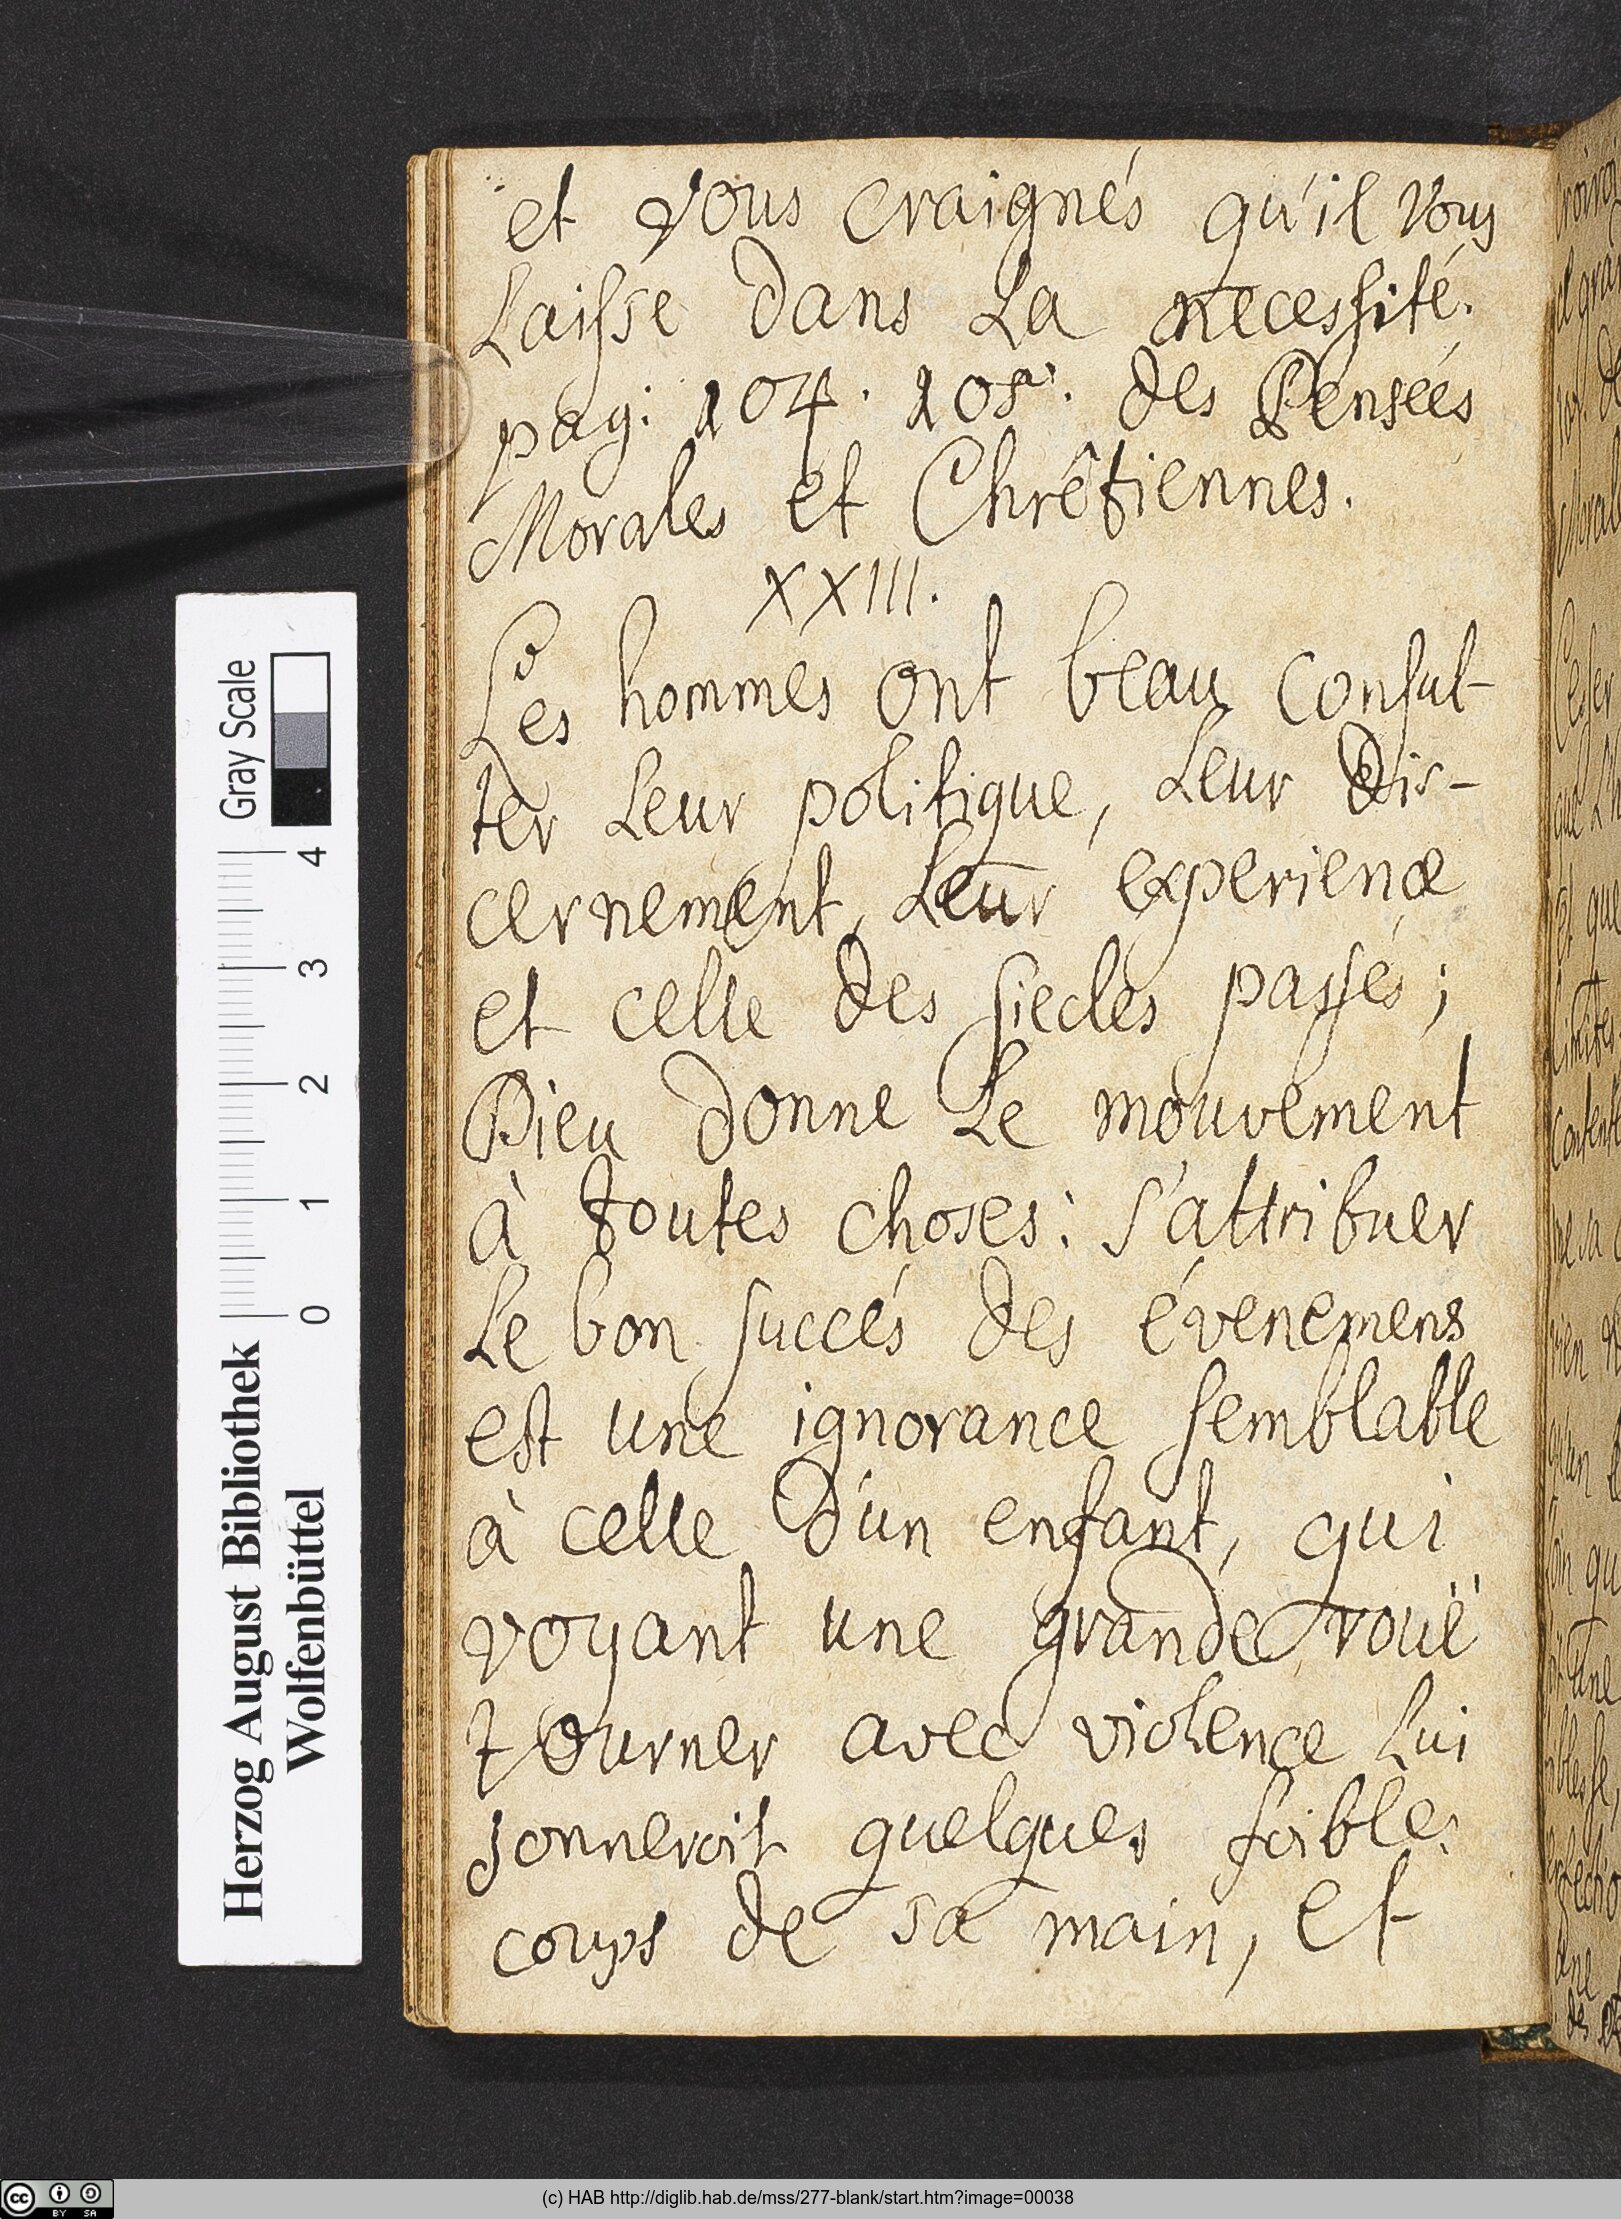 et vous craignés qu'il vous
Laisse dans La necessité.
pag: 104. 105. des Pensées
Morales et Chrêtiennes.
XXIII.
Les hommes ont beau consul-
ter Leur politique, Leur dis-
cernement, Leur experience
et celle des siecles passés;
Dieu donne Le mouvement
à toutes choses: s'attribuer
Le bon succés des évenemens
est une ignorance semblable
à celle d'un enfant, qui
voyant une grande rouë
tourner avec violence Lui
donneroit quelques foibles
coups de sa main, et
Gray Scale
4
3
2
1
0
Herzog August Bibliothek
Wolfenbüttel
(c) HAB http://diglib.hab.de/mss/277-blank/start.htm?image=00038